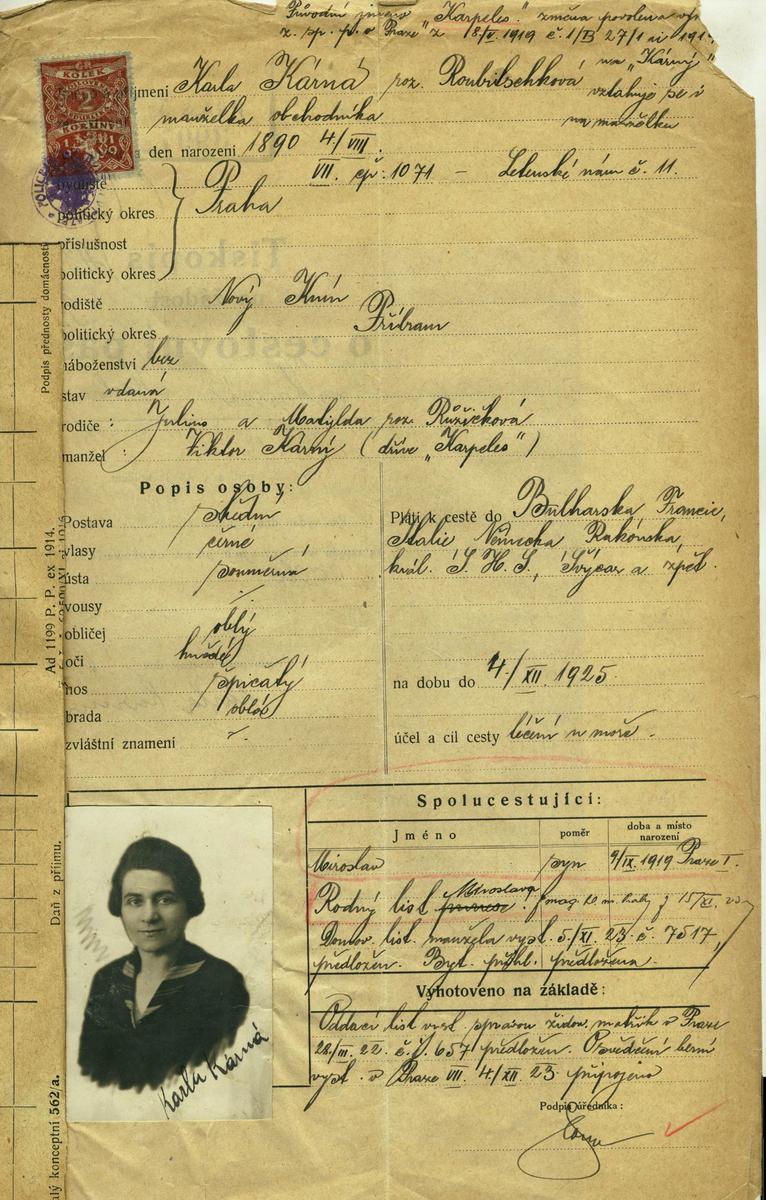 Původní jméno "Karpeles" změna povolena
z. sp. p. v Praze z 18/V. 1919 č. 1/B 27/1
KOLEK
2
KORUNY
jmení Karla Kárná roz. Roubitschková na „Kárný"
vztahuje se i
manželka obchodníka na manželku
a den narození 1890 4/VIII.
bydliště VII. čp. 1071 – Letenské nám č. 11.
politický okres Praha
příslušnost
politický okres
rodiště Nový Knín
politický okres Příbram
náboženství bez
stav vdaná
rodiče : Julius a Matylda roz. Růžičková
manžel : Viktor Kárný (dříve „Karpeles")
Popis osoby:
Postava střední
vlasy černé
ústa souměrná
vousy /.
obličej oblý
oči hnědé
nos špičatý
brada oblá
zvláštní znamení
Platí k cestě do Bulharska, Francie,
Italie Německa Rakouska,
král. S. H. S., Švýcar a zpět.
na dobu do 4./XII. 1925.
účel a cíl cesty léčení u moře.
Spolucestující:
Jméno poměr doba a místo narození
Miroslav syn 9/IX. 1919 Praze I.
Rodný list Miroslava
Domov. list. manžela vyst. 5./XI. 23. č. 7517,
předložen. Byt. přihl. předložena.
Vyhotoveno na základě:
Oddací list vyst. správou židov. matrik v Praze
22/III. 22 č. j. 657 předložen. Osvědčení berní
vyst. v Praze VII. 4/XII 23 připojeno
Podpis úředníka:
Karla Kárná
Podpis přednosty domácnosti
Ad 1199 P. P. ex 1914.
Daň z příjmu.
alý konceptní 562/a.